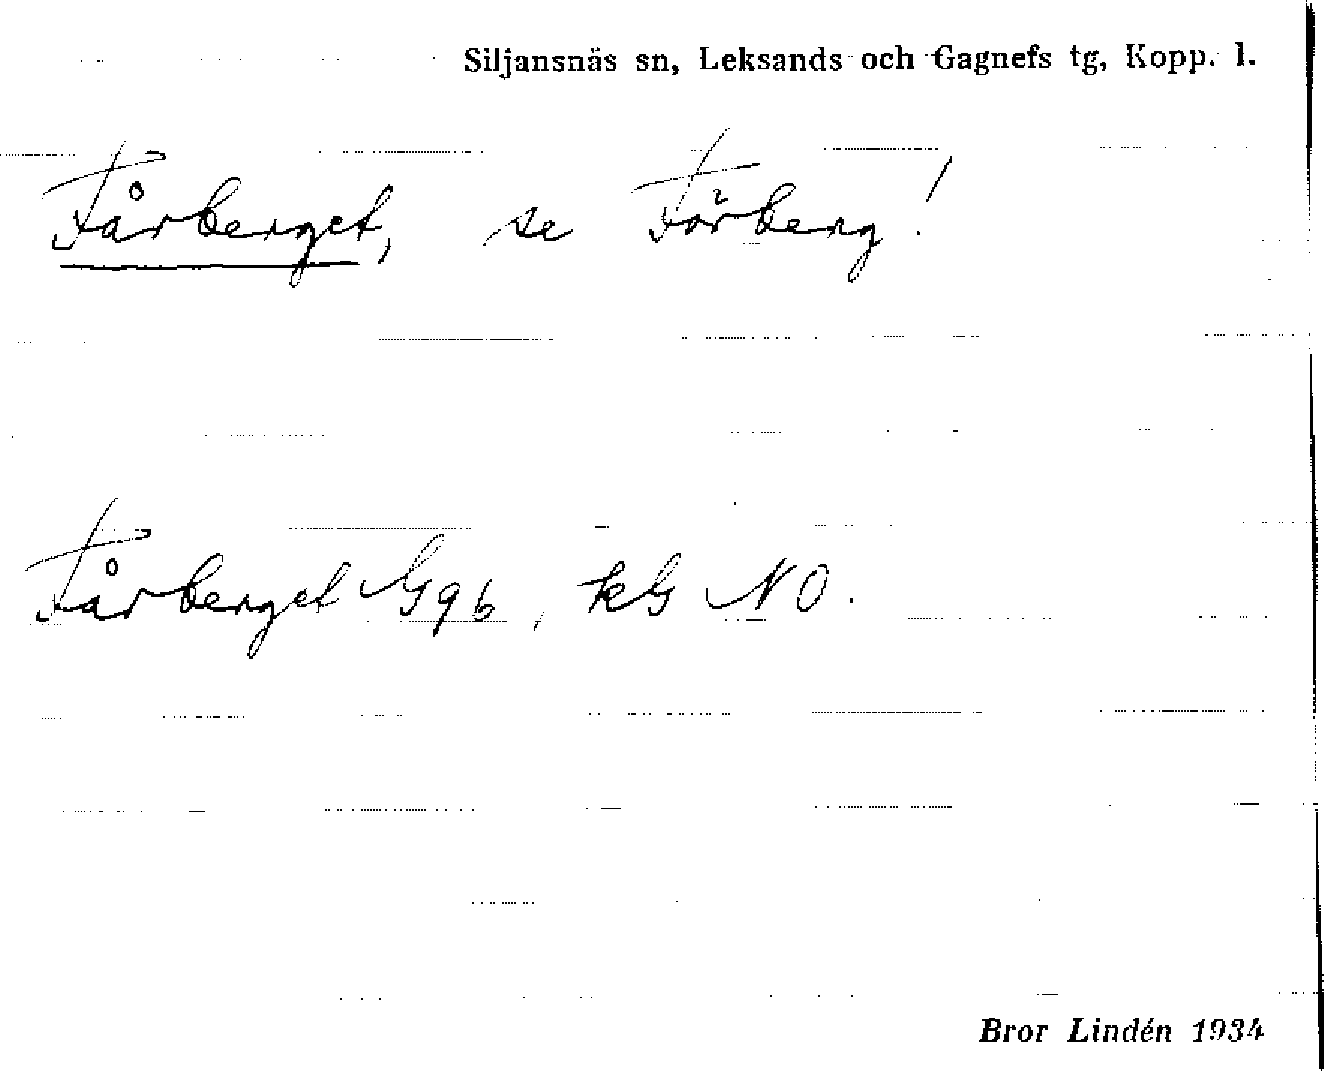 Siljansnäs sn, Leksands och Gagnefs tg, Kopp. l.
Fårberget, se Förberg!
Fårberget G96, kG NO.
Bror Lindén 1934